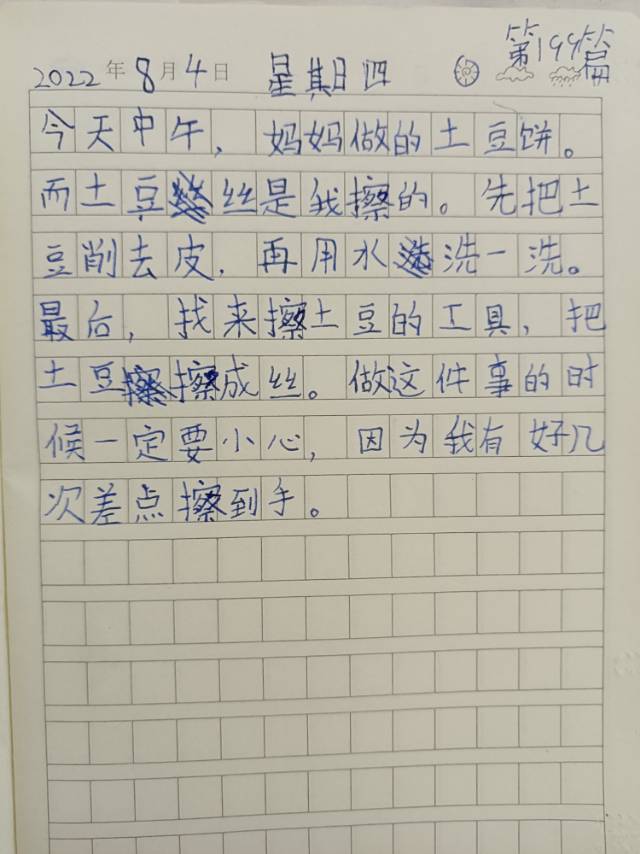 第199篇
2022年8月4日 星期四
今天中午，妈妈做的土豆饼。
而土豆丝是我擦的。先把土
豆削去皮，再用水洗一洗。
最后，找来擦土豆的工具，把
土豆擦成丝。做这件事的时
候一定要小心，因为我有好几
次差点擦到手。